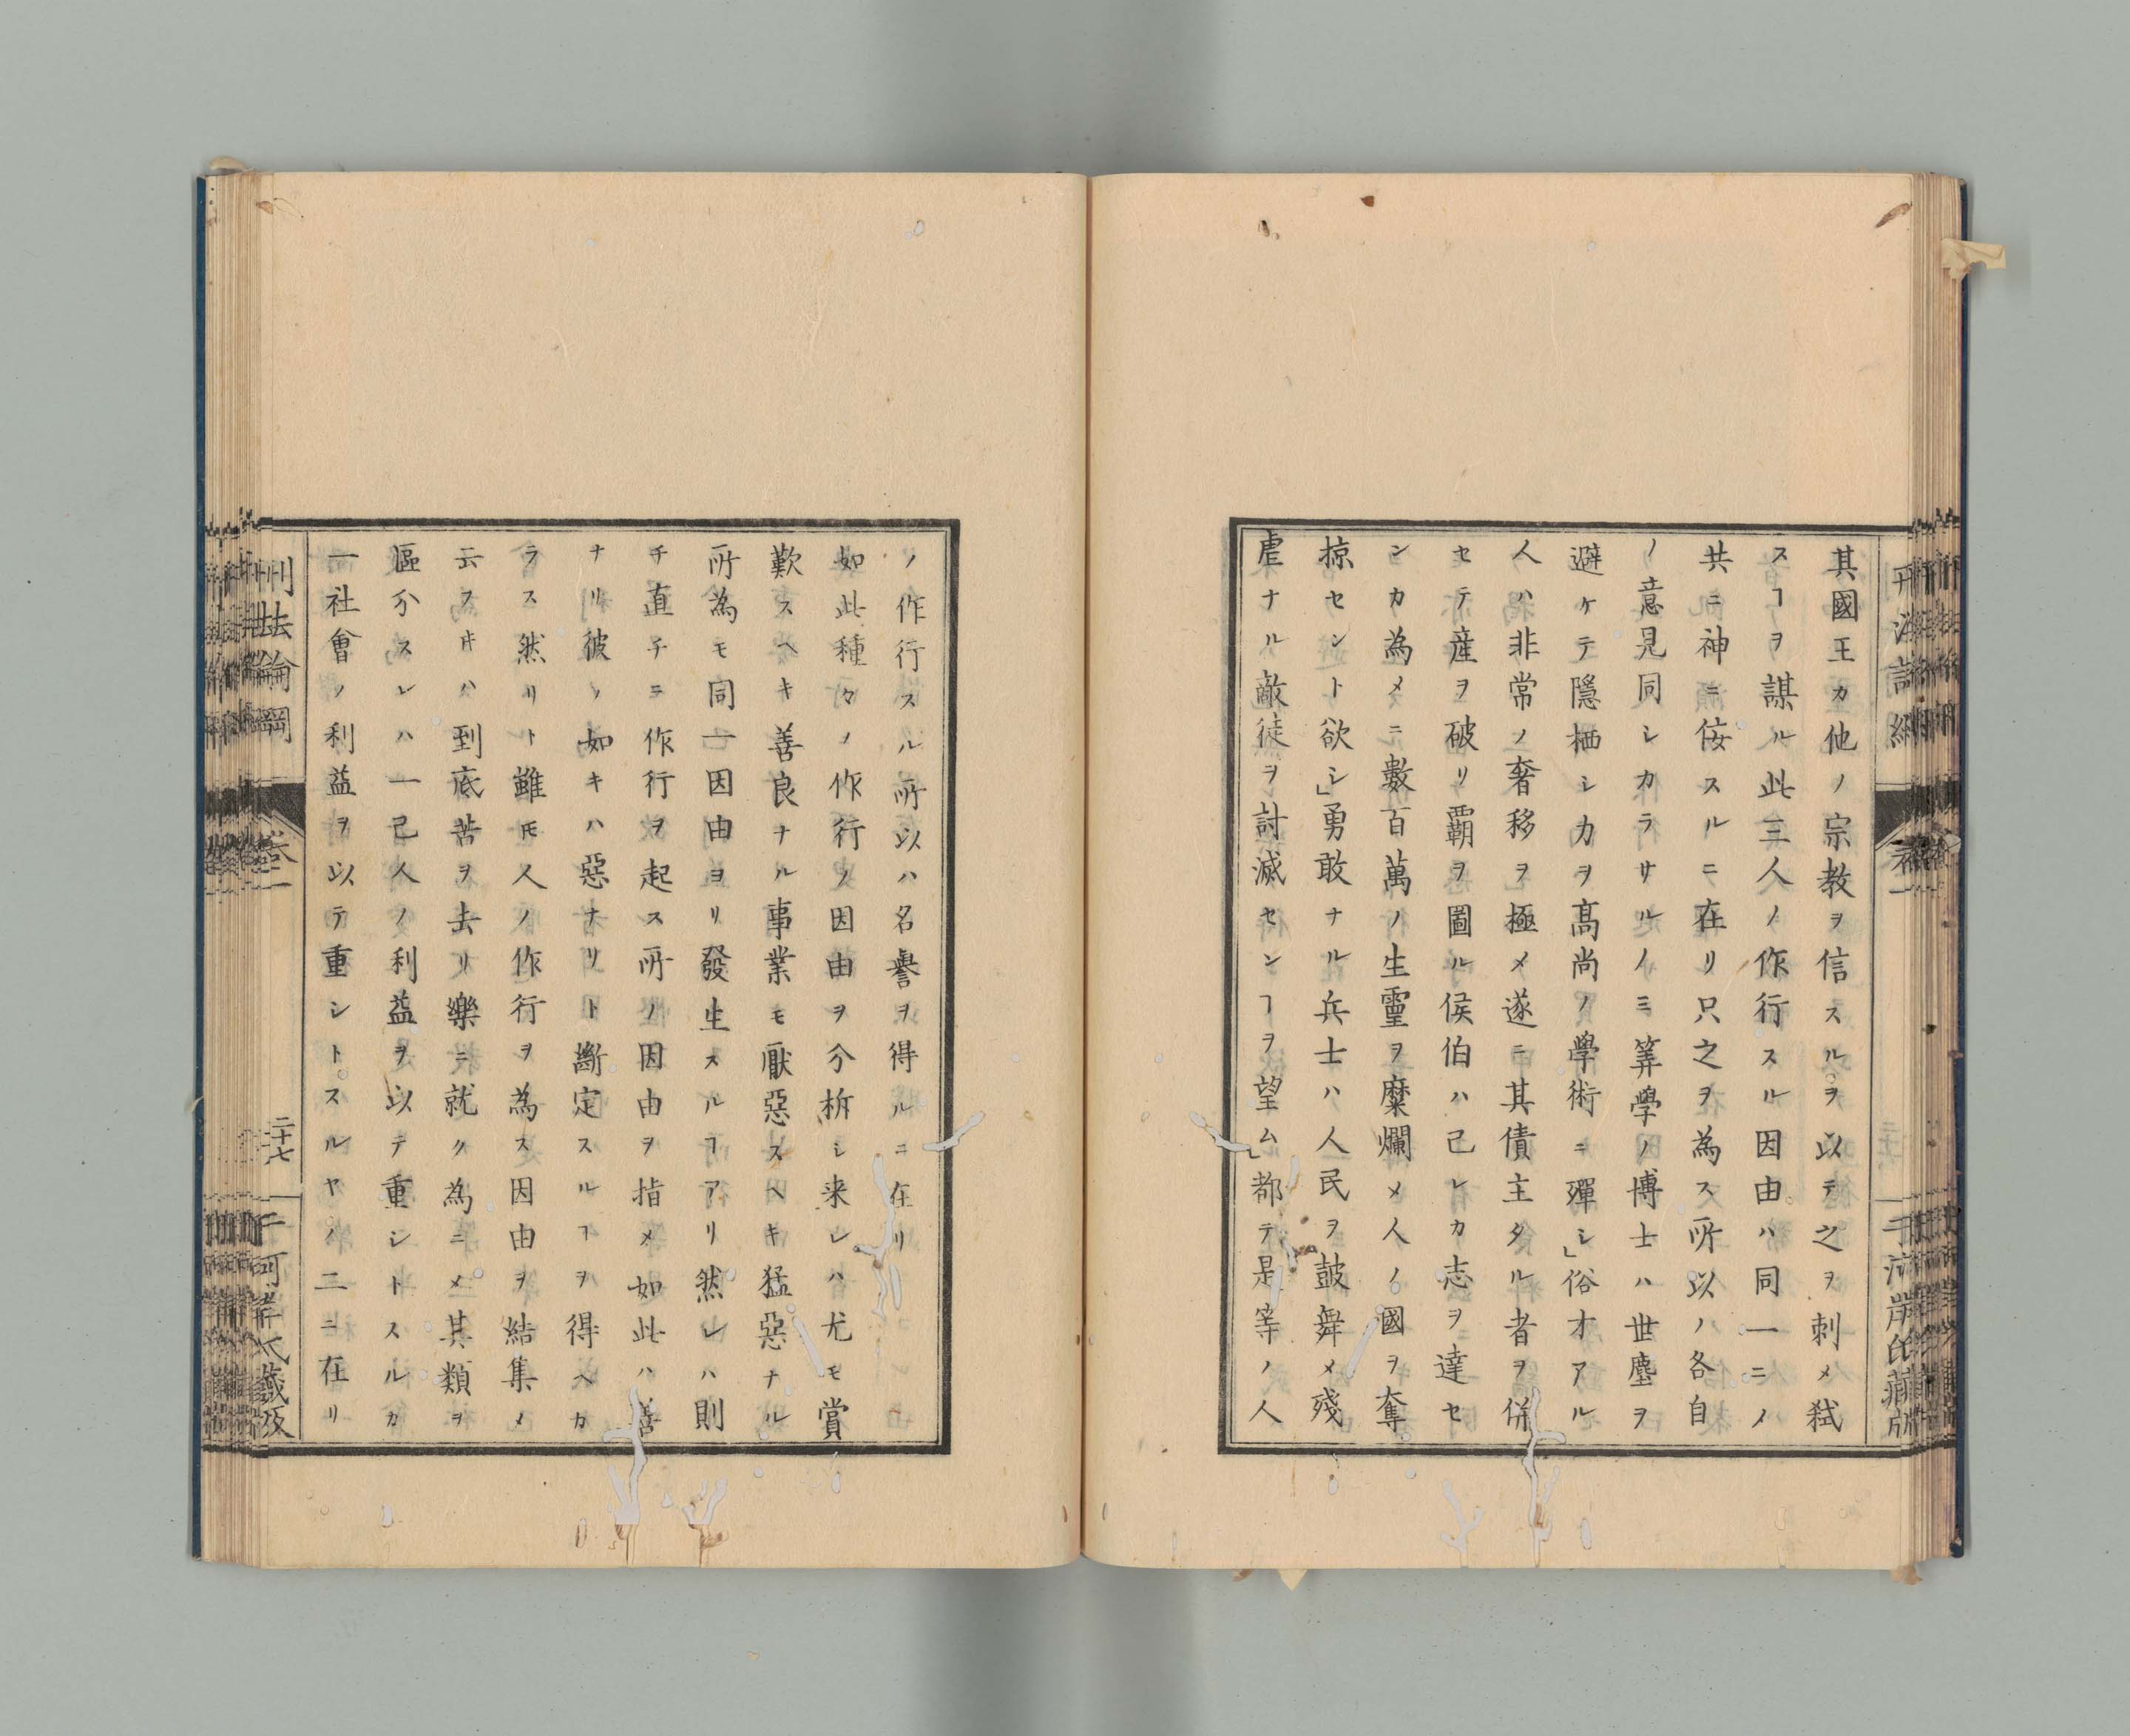 其國王カ他ノ宗教ヲ信スルヲ以テ之ヲ刺メ弑
スヿヲ謀ル此三人ノ作行スル因由ハ同一ニメ
共ニ神ニ侫スルニ在リ只之ヲ為ス所以ノ各自
ノ意見同シカラサルノミ筭學ノ博士ハ世塵ヲ
避ケテ隱栖シ力ヲ髙尚ノ學術ニ殫シ」俗才アル
人ハ非常ノ奢移ヲ極メ遂ニ其債主タル者ヲ併
セテ産ヲ破リ覇ヲ圖ル侯伯ハ己レカ志ヲ達セ
ンカ為メニ數百萬ノ生靈ヲ糜爛メ人ノ國ヲ奪
掠セント欲シ」勇敢ナル兵士ハ人民ヲ鼓舞メ殘
虐ナル敵徒ヲ討滅センヿヲ望ム」都テ是等ノ人
ノ作行スル所以ハ名譽ヲ得ルニ在リ
如此種々ノ作行ノ因由ヲ分柝シ来レハ尤モ賞
歎スヘキ善良ナル事業モ厭惡スヘキ猛惡ナル
所為モ同一因由ヨリ發生スルヿアリ然レハ則
チ直チニ作行ヲ起ス所ノ因由ヲ指メ如此ハ善
ナリ彼ノ如キハ惡ナリト斷定スルヿヲ得ヘカ
ラス然リト雖モ人ノ作行ヲ為ス因由ヲ結集メ
云フ𪜈ハ到底苦ヲ去リ樂ニ就ク為ニメ其類ヲ
區分スレハ一己人ノ利益ヲ以テ重シトスルカ
一社會ノ利益ヲ以テ重シトスルヤノ二ニ在リ
刑法論綱
卷一
二十七
千河岸氏藏版